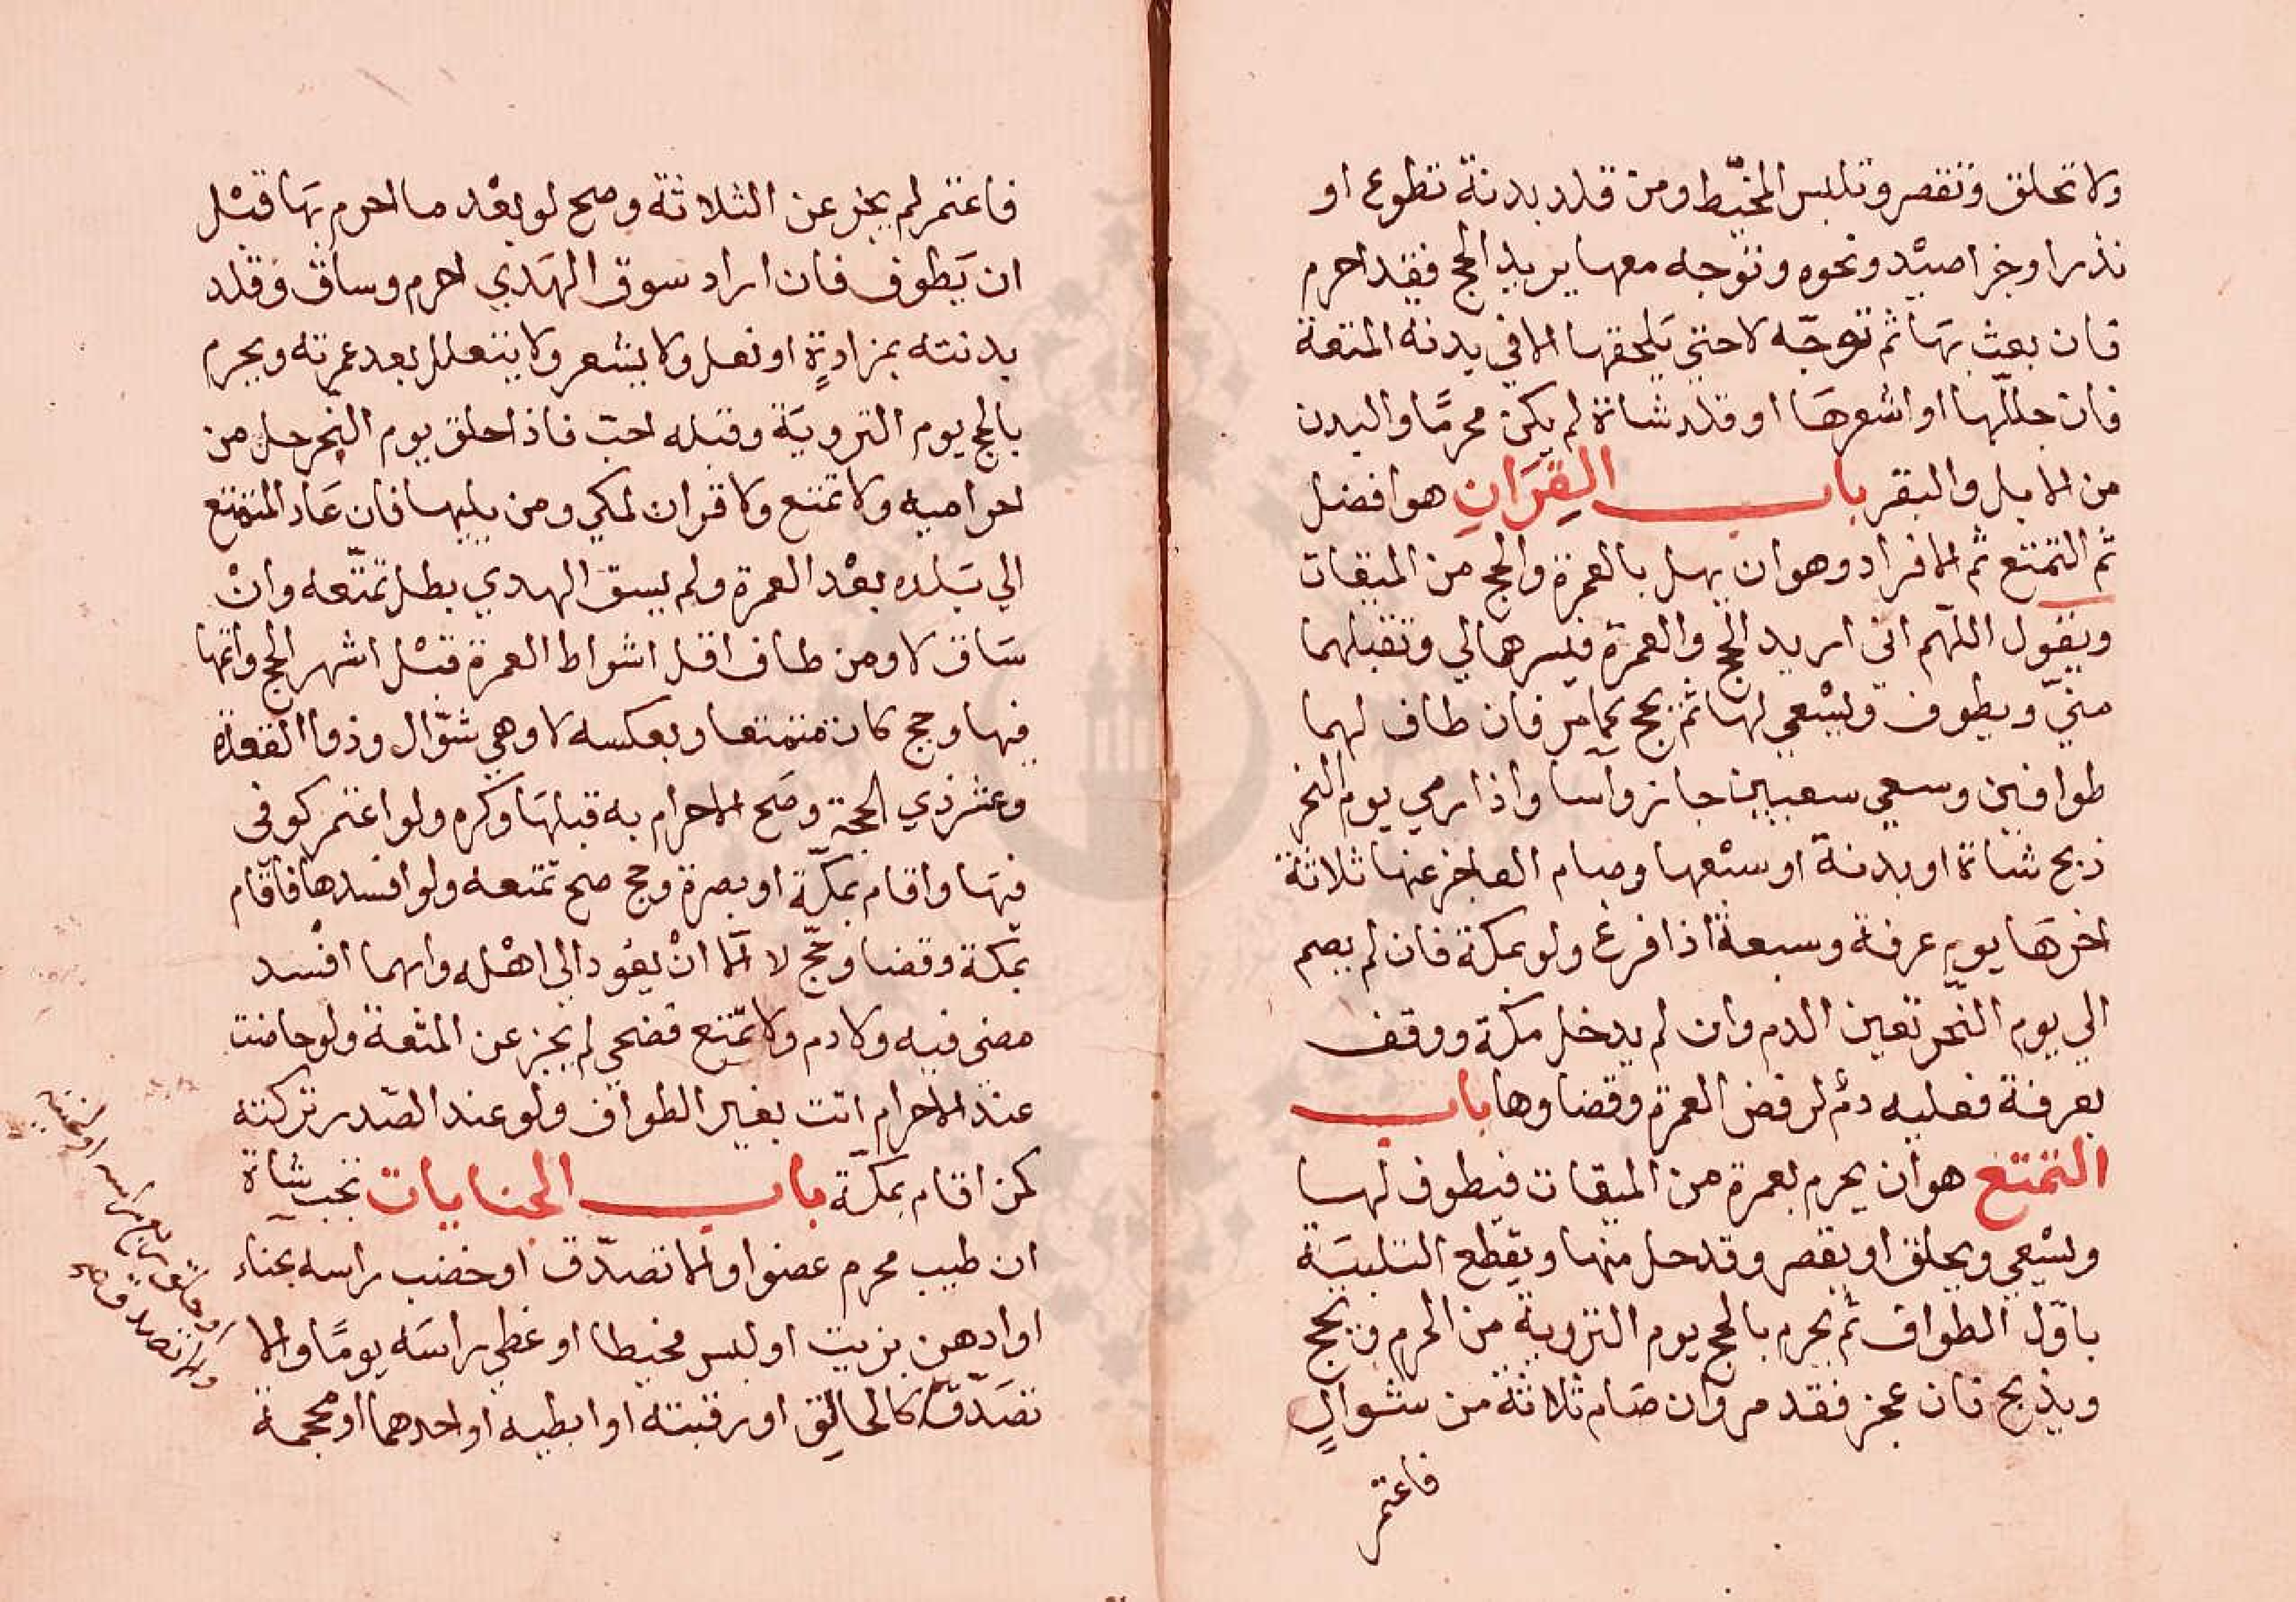 ولا تحلق وتقصر وتلبس المخيّط ومن قلد بدنة تطوع او
نذرا وجزا صيْد ونحوه وتوجه معها يريد الحج فقد احرم
فان بعث بهَا ثم توجّه لا حتي يَلحقها الا في بدنة المتعة
فان جللّها او اشعرهَا او قلد شاة لم يكن محرمًا والبدن
من الابل والبقر باب القِرَانِ هو افضل
ثم التمتع ثم الافراد وهو ان يهل بالعمرة والحج من الميقات
ويقول اللّهم اني اريد الحج والعمرة فيسرهما لي وتقبلهما
منيّ ويطوف ويسْعي لها ثم يحج كما مر فان طاف لهما
طوافين وسعي سعيين جاز واسا واذا رمي يوم النحر
ذبح شاة او بدنة او سبْعها وصام العاجز عنها ثلاثة
اخرهَا يوم عرفة وسبعة اذا فرغ ولو بمكة فان لم يصم
الي يوم النّحر تعين الدم وان لم يدخل مكة ووقف
بعرفة فعليه دم لرفض العمرة وقضاوها باب
التمتع هو ان يحرم بعمرة من الميقات فيطوف لها
ويسْعي ويحلق او يقصر وقد حل منها ويقطع التلبيَة
باوّل الطواف ثم يحرم بالحج يوم التروية من الحرم ويحج
ويذبح فان عجز فقد مر وان صَام ثلاثة من شوالٍ
فاعتمر
فاعتمر لم يجز عن الثلاثة وصح لو بعْد ما احرم بهَا قبْل
ان يَطوف فان اراد سوق الهَدي احرم وساق وَقلد
بدنته بمزادةٍ او نعل ولا يشعر ولا يتحلل بعد عمرته ويحرم
بالحج يوم الترويَة وقبله احبّ فاذا حلق يوم النحر حل من
احراميه ولا تمتع ولا قران لمكي ومن يليها فان عَاد المتمتع
الي بَلده بعْد العمرة ولم يسق الهدي بطل تمتّعه وانْ
سَاق لا ومن طاف اقل اشواط العمرة قبْل اشهر الحج واتمها
فيها وحج كان متمتعا وبعكسه لا وهي شوّال وذوا القعدة
وعشر ذي الحجة وصَح الاحرام به قبلهَا وكره ولو اعتمر كوفى
فيهَا واقام بمكّة او بصرة وحج صح تمتعه ولو افسدها فاقام
بمكّة وقضا وحجّ لا الا انْ يعود الي اهْله وايهما افسد
مضى فيه ولا دم ولا تمّتع فضحي لم يجز عن المتْعة ولو حاضت
عند الاحرام اتت بغير الطواف ولو عند الصّدر تركته
كمن اقام بمكّة باب الجنايات تجب شاة
ان طيب محرم عضوا والا تصدّق او خضب راسه بحناء
او ادهن بزيت او لبس مخيطا او غطي راسَه يومًا والا
تصَدّق كالحالق او رقبته او ابطيه او احدهما او محجمة
او حلق ربع راسه او لحيته
والا تصدق صح